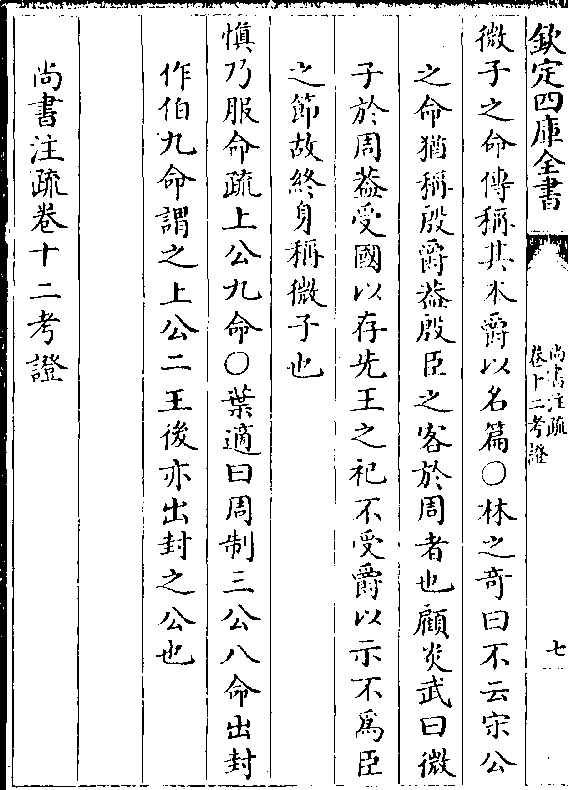 欽定四庫全書
尚書注疏
卷十二考證
七
微子之命傳稱其本爵以名篇○林之奇曰不云宋公
之命猶稱殷爵蓋殷臣之客於周者也顧炎武曰微
子於周蓋受國以存先王之祀不受爵以示不為臣
之節故終身稱微子也
慎乃服命疏上公九命○葉適曰周制三公八命出封
作伯九命謂之上公二王後亦出封之公也
尚書注疏卷十二考證